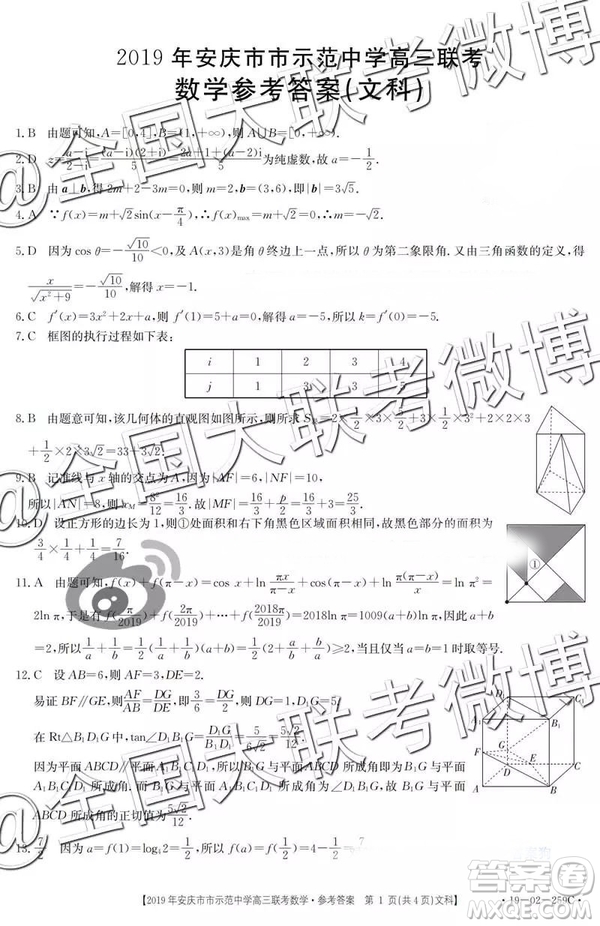 2019 年安庆市市示范中学高三联考
数学参考答案(文科)
1. B 由题可知,A=[0,4],B=(1,+∞),则A∪B=[0,+∞).
2. D z=(a-i)/(2-i)=(a-i)(2+i)/5=(2a+1+(a-2)i)/5为纯虚数,故a=-1/2.
3. B 由a⊥b,得2m+2-3m=0,则m=2,b=(3,6),即|b|=3√5.
4. A ∵f(x)=m+√2sin(x-π/4),∴f(x)max=m+√2.
5. D 因为cos θ=-√10/10<0,及A(x,3)是角θ终边上一点,所以θ为第二象限角.又由三角函数的定义,得
x/√(x²+9)=-√10/10,解得x=-1.
6. C f′(x)=3x²+2x+a,则f′(1)=5+a=0,解得a=-5,所以k=f′(0)=-5.
7. C 框图的执行过程如下表:
i 1 2 3 4
j 1 3 4 5
8. B 由题意可知,该几何体的直观图如图所示,则所求S
+1/2×2×3√2=33+3√2.
9. B 记准线与x轴的交点为A,因为|AF|=6,|NF|=10,
所以|AN|=8,则xM=8²/12=16/3.故|MF|=16/3+p/2=16/3+3=25/3.
10. D 设正方形的边长为1,则①处面积和右下角黑色区域面积相同,故黑色部分的面积为
3/4×1/4+1/4=7/16.
①
11. A 由题可知,f(x)+f(π-x)=cos x+ln πx/(π-x)+cos(π-x)+ln π(π-x)/x=
2ln π,于是有f(π/2019)+f(2π/2019)+…+f(2018π/2019)=2018ln π=1009(a+b)ln π.因此a+b
=2,所以1/a+1/b=1/2(1/a+1/b)(a+b)=1/2(2+a/b+b/a)≥2,当且仅当a=b=1时取等号.
12. C 设AB=6,则AF=3,DE=2.
易证BF∥GE,则AF/AB=DG/DE,即3/6=DG/2,则DG=1,D₁G=5.
在Rt△B₁D₁G中,tan∠D₁B₁G=D₁G/B₁D₁=5/(6√2)=5√2/12.
因为平面ABCD∥平面A₁B₁C₁D₁,所以B₁G与平面ABCD所成角即为B₁G与平面
A₁B₁C₁D₁所成角.而B₁G与平面A₁B₁C₁D₁所成角为∠D₁B₁G,所以B₁G与平面
ABCD所成角的正切值为5√2/12.
D₁ C₁ A₁ B₁ F G E D C A B
13. 7/2 因为a=f(1)=log₄2=1/2,
【2019年安庆市市示范中学高三联考数学·参考答案 第 1 页(共4页)文科】
·19-02-259C·
@全国大联考微博
@全国大联考微博
@全国大联考微博